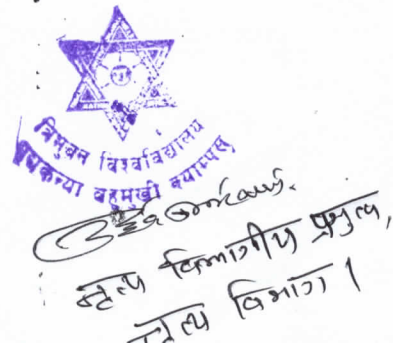 त्रिभुवन विश्वविद्यालय
पद्मकन्या बहुमुखी क्याम्पस
नृत्य विभागीय प्रमुख,
नृत्य विभाग।